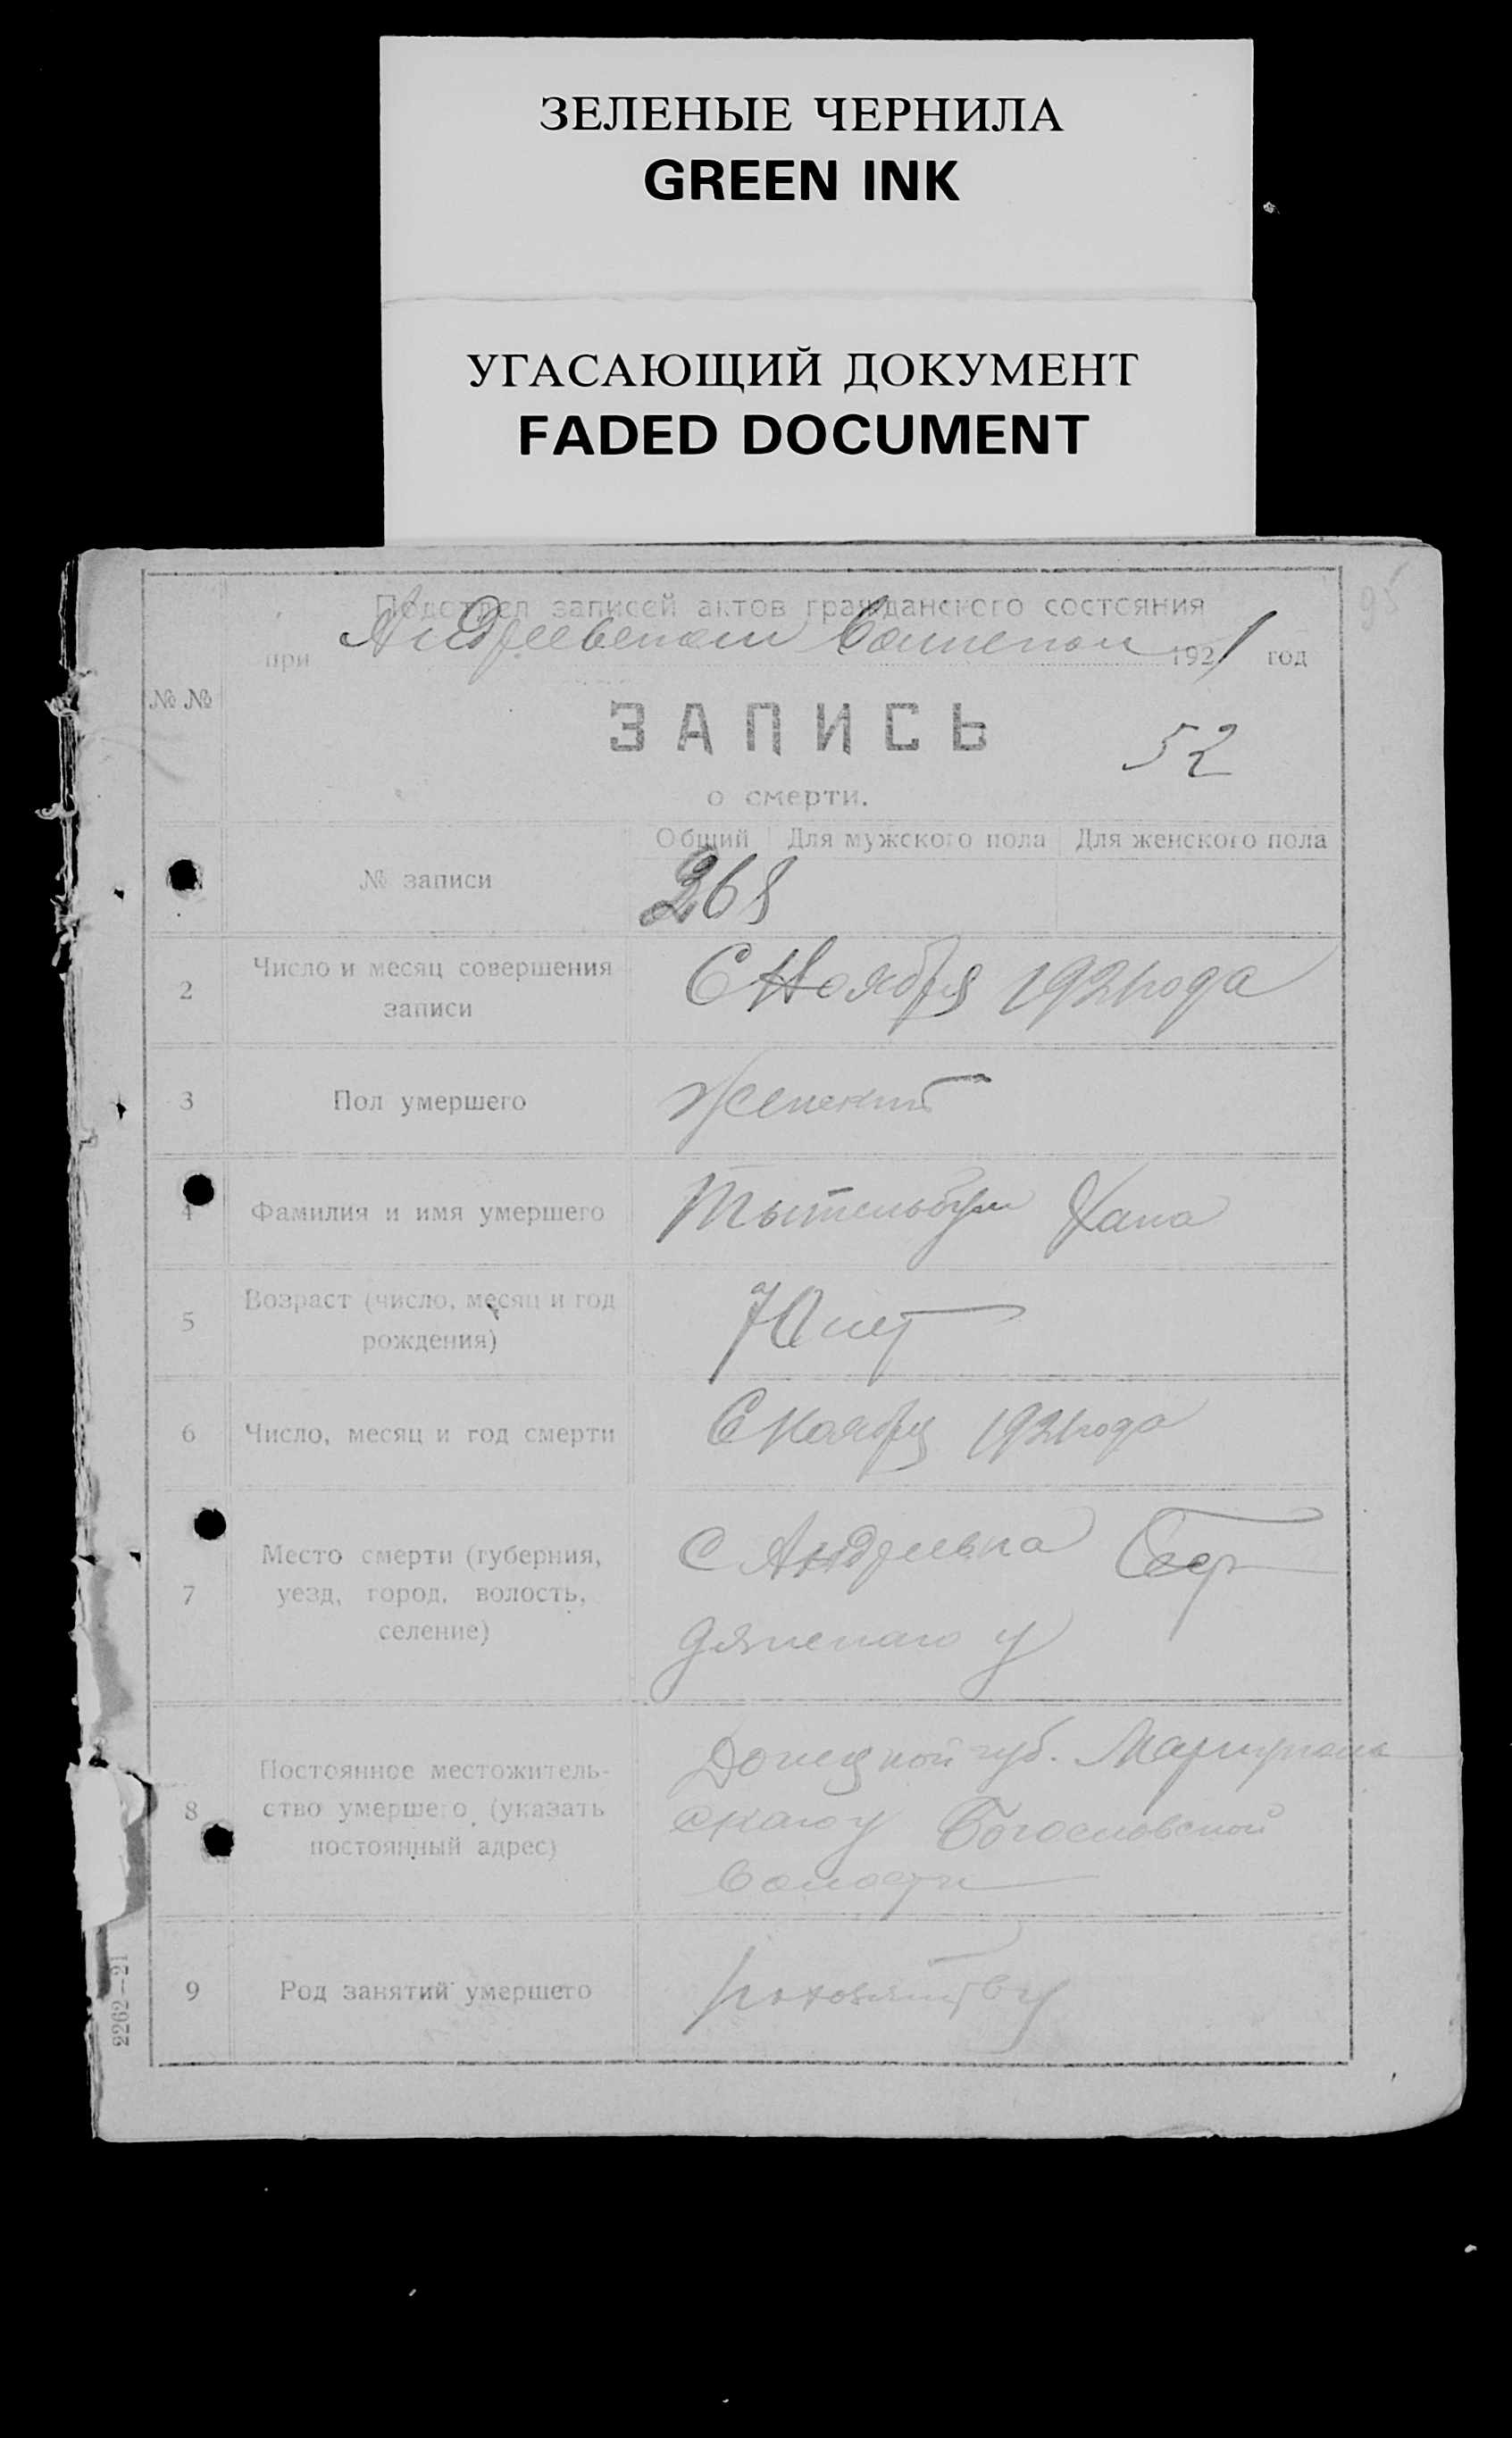 ЗЕЛЕНЫЕ ЧЕРНИЛА
GREEN INK
УГАСАЮЩИЙ ДОКУМЕНТ
FADED DOCUMENT
95
Подотдел записей актов гражданского состояния
при Андреевском 1921 год
№ №
ЗАПИСЬ
52
о смерти.
Общий Для мужского пола Для женского пола
№ записи 268
2 Число и месяц совершения записи 6 Ноября 1921 года
3 Пол умершего Женский
4 Фамилия и имя умершего Хана
5 Возраст (число, месяц и год рождения) 70 лет
6 Число, месяц и год смерти 6 Ноября 1921 года
7 Место смерти (губерния, уезд, город, волость, селение) С Андреевка Бер
дянского у
8 Постоянное местожитель-
ство умершего (указать постоянный адрес) Донецкой губ. Мариуполь
ского у Богословской
волости
9 Род занятий умершего
2262—21